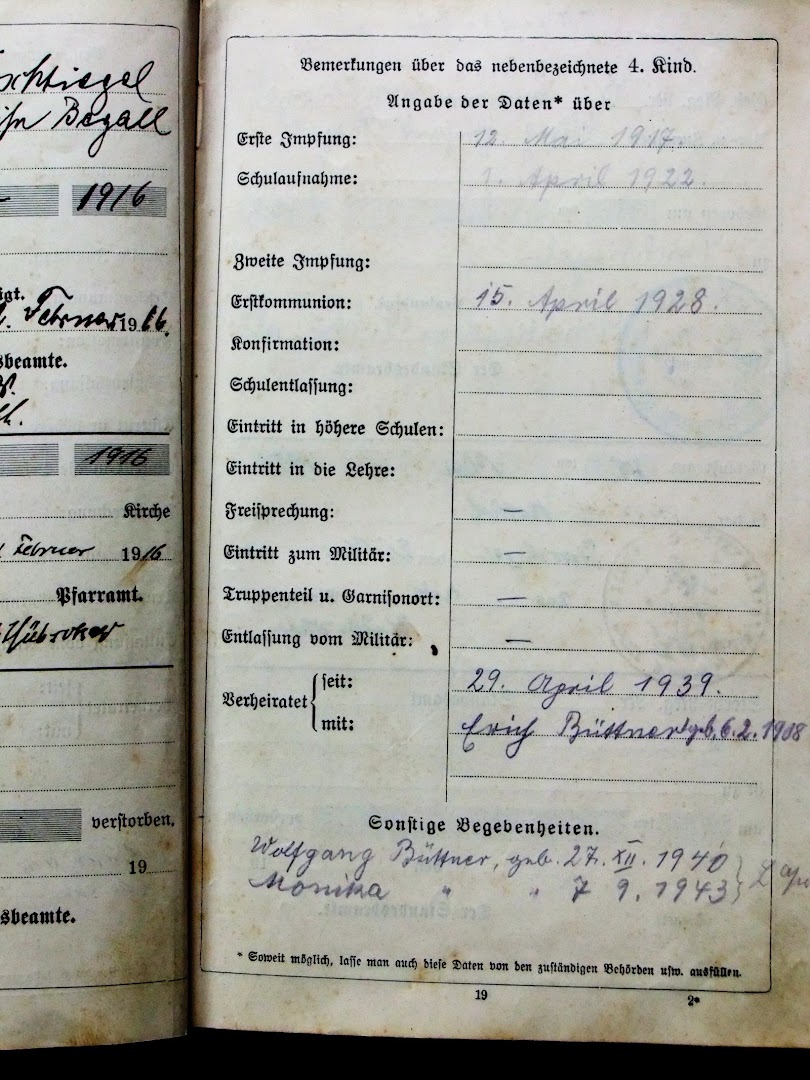 Begall
1916
igt.
Februar 1916.
sbeamte.
1916
Kirche
Februar 1916
Pfarramt.
verstorben,
19
sbeamte.
Bemerkungen über das nebenbezeichnete 4. Kind.
Angabe der Daten* über
Erste Impfung: 12. Mai 1917.
Schulaufnahme: 1. April 1922.
Zweite Impfung:
Erstkommunion: 15. April 1928.
Konfirmation:
Schulentlassung:
Eintritt in höhere Schulen:
Eintritt in die Lehre:
Freisprechung: —
Eintritt zum Militär: —
Truppenteil u. Garnisonort: —
Entlassung vom Militär: —
Verheiratet
seit: 29. April 1939.
mit: Erich Büttner geb. 6.2.1908
Sonstige Begebenheiten.
Wolfgang Büttner, geb. 27. XII. 1940
Monika " " 7 9. 1943
* Soweit möglich, lasse man auch diese Daten von den zuständigen Behörden usw. ausfüllen.
19
2*